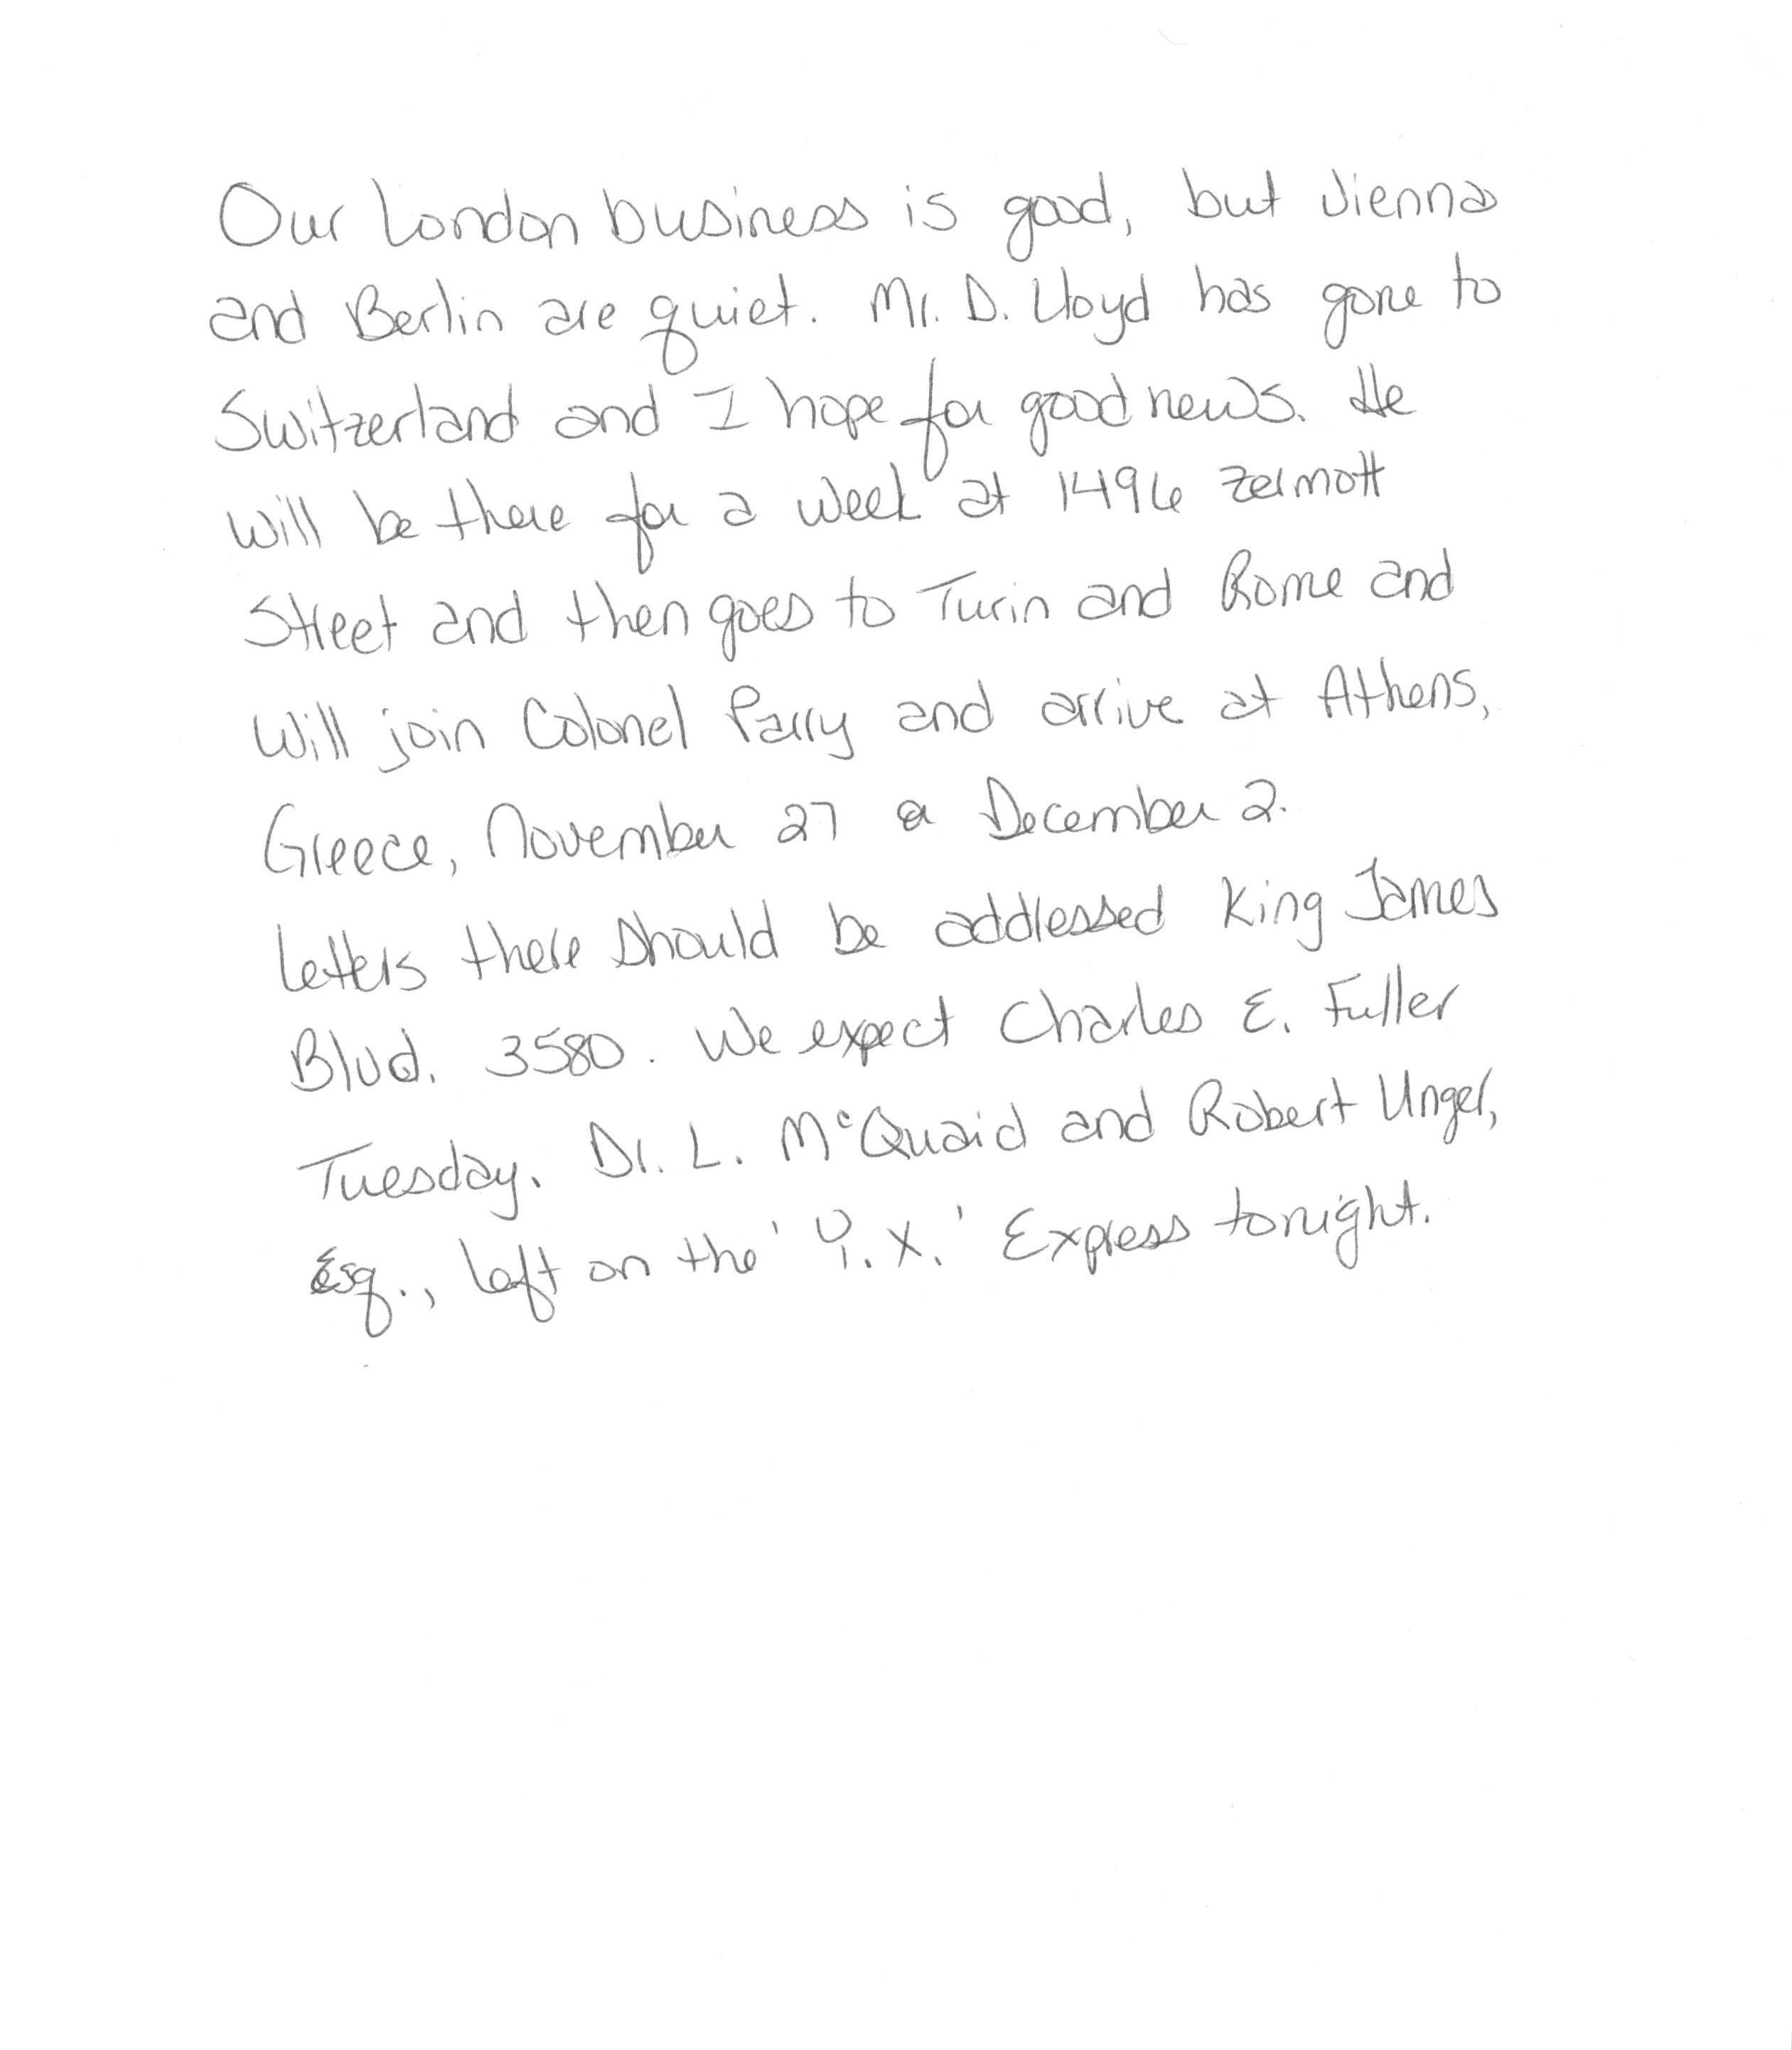 Our London business is good, but Vienna
and Berlin are quiet. Mr. D. Lloyd has gone to
Switzerland and I hope for good news. He
will be there for a week at 1496 Zermott
Street and then goes to Turin and Rome and
will join Colonel Parry and arrive at Athens,
Greece, November 27 or December 2.
Letters there should be addressed King James
Blvd. 3580. We expect Charles E. Fuller
Tuesday. Dr. L. McQuaid and Robert Unger,
Esq., left on the 'Y.X.' Express tonight.